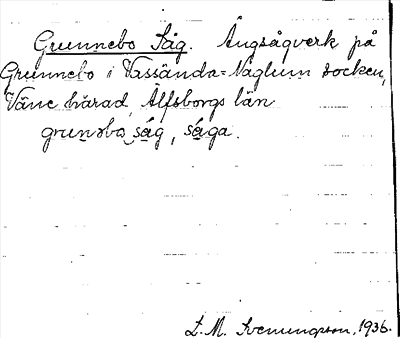 Grunnebo Såg. Ångsågverk på
Grunnebo i Vassända-Naglum socken,
Väne härad, Älfsborgs län
grunəbo såg, såga.
L. M. Svenungsson, 1936.